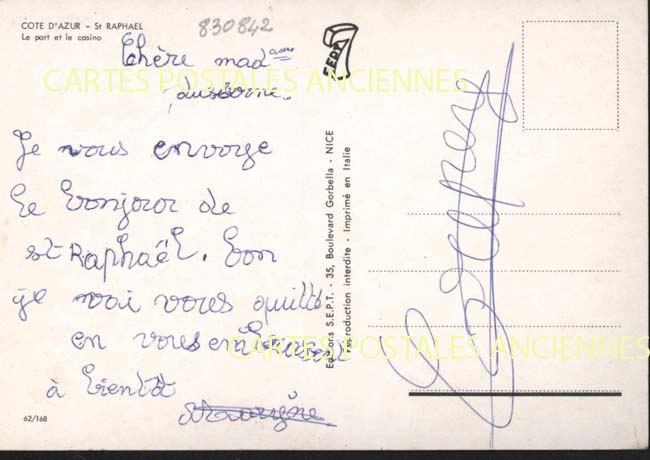 COTE D'AZUR - St RAPHAEL
Le port et le casino
830842
SEPT
Chère madame
CARTES POSTALES ANCIENNES
Je vous envoye
le bonjour de
st Raphaël. bon
je vai vous quitté
en vous
CARTES POSTALES ANCIENNES
à bientôt
62/168
Editions S.E.P.T. - 35, Boulevard Gorbella - NICE
Reproduction interdite - Imprimé en Italie